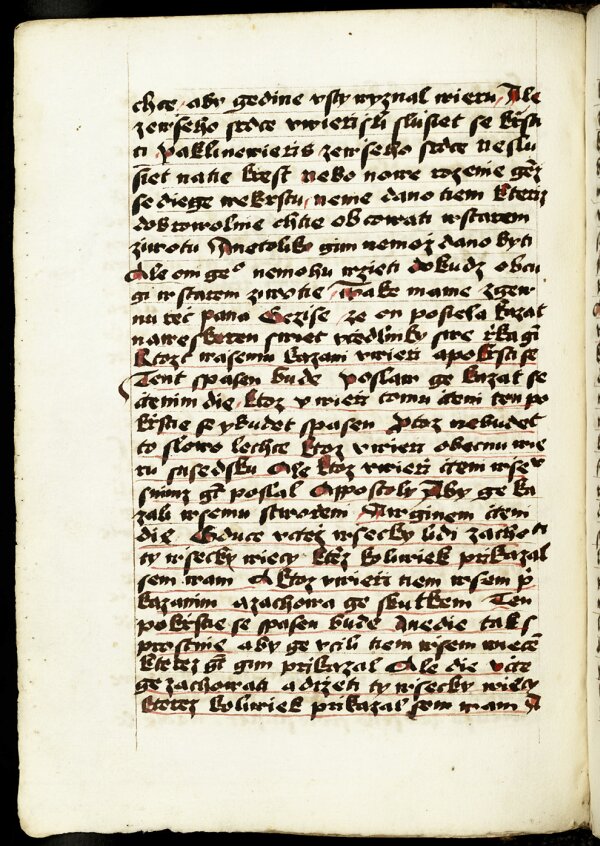 chce aby gedine vsty wyznal wieru Ale
zewſeho ſrdce vwieriſli ſluſiet ſe krſti
ti paklinewieriſ zewſeho ſrdce neſlu
ſiet natie kreſt nebo nowe rozenie genz
ſe diege wekrſtu neme dano tiem kteriz
dobrowolnie chtie obcowati wſtarem
ziwotu Anetoliko gim nemoz dano byti
Ale oni geo nemohu wzieti dokudz obcu
gi wſtarem ziwotie Take mame zgew
nu rec pana Gezise ze on poſiela kazat
naweſkeren ſwiet vcedlniky ſwe rka gim
Ktoz waſemu kazani vwieri apokrſti ſe
Tent ſpaſen bude poſlaw ge kazat ſe
ctenim die ktoz vwieri tomu cteni ten po
krſtie ſe y bude ſpaſen Ptoz nebudet
to ſlowo lechce ktoz vwieri obecnu wie
ru ſuſedſku Ale ktoz vwieri ctem wſe
ſmuz gt poſlal Appoſtoly Aby ge ka
zali wſemu ſtworeni Awginem cteni
die Gduce vctez wſecky lidi zachowati
ty wſecky wiecy ktez koliwiek prikazal
ſem wam A ktoz vwieri tiem wſem pri
kazanim azachowa ge ſkutkem Ten
pokrſtie ſe ſpaſen bude Anedie tak
proſtnie aby ge vcili tiem wſem wiecem
kterez gt gim prikazal Ale die vcte
ge zachowati adrzeti ty wſecky wiecy
kterez koliwiek prikazal ſem wam A